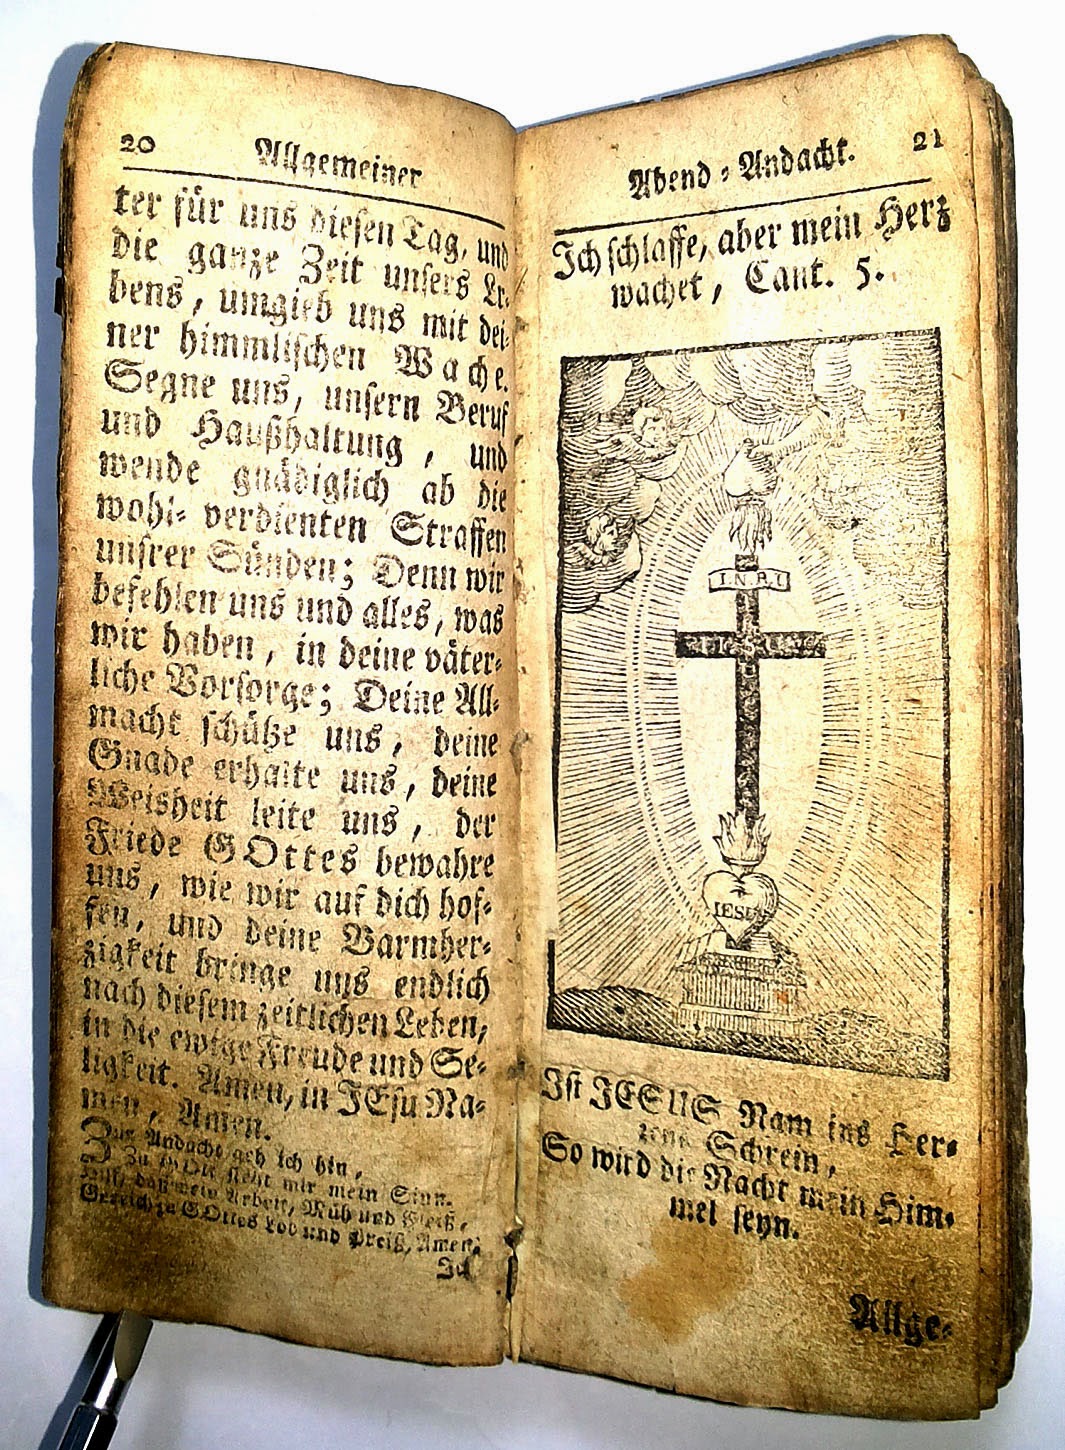 20
Allgemeiner
ter für uns diesen Tag, und
die ganze Zeit unsers Le-
bens, umgieb uns mit dei-
ner himmlischen Wache.
Segne uns, unsern Beruf
und Haußhaltung, und
wende gnädiglich ab die
wohl-verdienten Straffen
unsrer Sünden; Denn wir
befehlen uns und alles, was
wir haben, in deine väter-
liche Vorsorge; Deine All-
macht schütze uns, deine
Gnade erhalte uns, deine
Weisheit leite uns, der
Friede GOttes bewahre
uns, wie wir auf dich hof-
fen, und deine Barmher-
zigkeit bringe uns endlich
nach diesem zeitlichen Leben,
in die ewige Freude und Se-
ligkeit. Amen, in JEsu Na-
men, Amen.
Zur Andacht geh ich hin,
Zu GOtt steht mir mein Sinn.
daß mein Arbeit, Müh und Fleiß,
Gereich zu GOttes Lob und Preiß, Amen.
Ich
Abend-Andacht.
21
Ich schlaffe, aber mein Herz
wachet, Cant. 5.
I.N.R.I.
IESUS
Ist JESUS Nam ins Her-
zens Schrein,
So wird die Nacht mein Him-
mel seyn.
Allge-